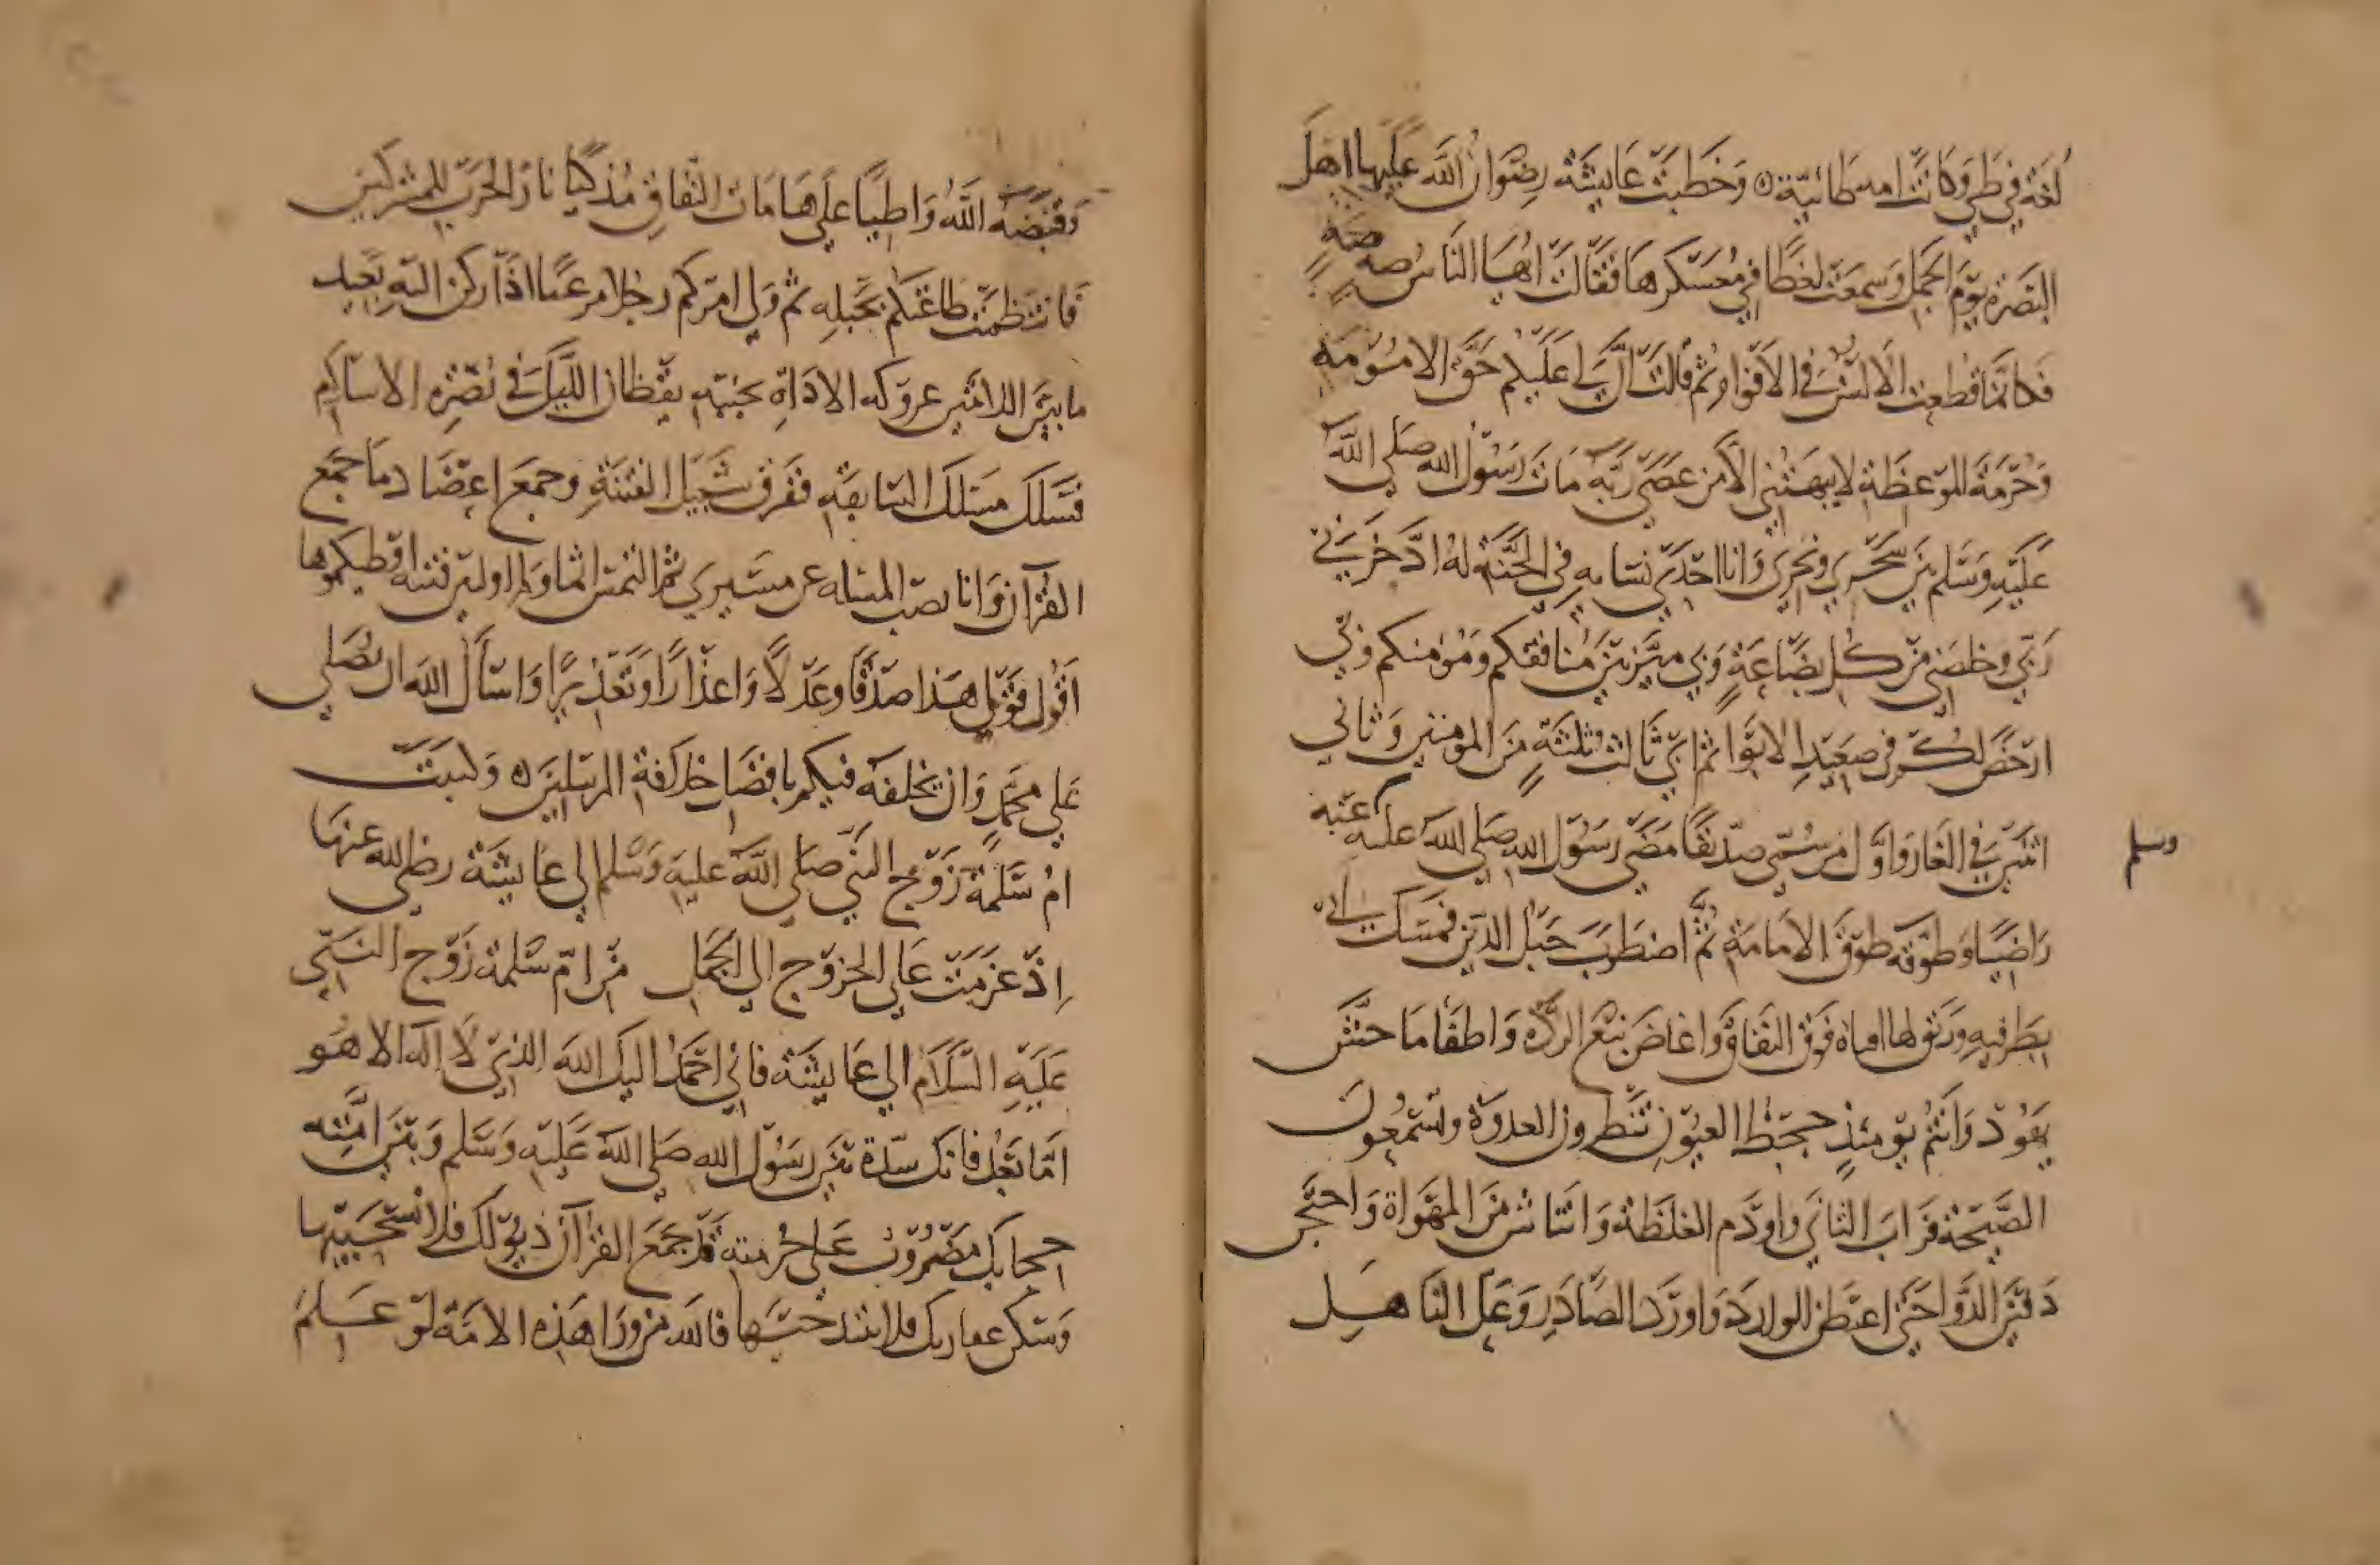 لغة في طي وكانت امه طائية ه وخطبت عايشة رضوان الله عليها اهل
البصرة يوم الجمل وسمعت لغطا في معسكرها فقالت ايها الناس صه صه
فكانما قطعت الالسن في الافواه ثم قالت ان لي عليكم حق الامومة
وحرمة الموعظة لا يتهمني الا من عصى ربه مات رسول الله صلى الله
عليه وسلم بين سحري ونحري وانا احدى نسايه في الجنة له ادخرني
ربي وخلصني من كل بضاعة وبي ميز بين منافقكم ومومنكم وبي
ارخص لكم في صعيد الابوا ثم ابي ثالث ثلثة من المومنين وثاني
اثنين في الغار واول من سمي صديقا مضى رسول الله صلى الله عليه عنه
وسلم
راضيا وطوقه طوق الامامة ثم اضطرب حبل الدين فمسك ابي
بطرفيه ورتق لها افياه فوق النفاق واغاض نبع الردة واطفا ما حشش
يهود وانتم يومئذ جحظ العيون تنظرون العدوة وتسمعون
الصيحة فراب الثاني واوذم الغلظة وانتاش من المهواة واحتجن
دفين الدوا حتى اعطن الوارد واورد الصادر وعل الناهل
وقبضه الله واطيا على هامات النفاق مذكيا نار الحرب للمشركين
فانتظمت طاعتكم بحبله ثم ولى امركم رجلا مرعيا اذا ركن اليه بعيد
ما بين اللابتين عروكه الاداة بجنبه يقظان الليل في نصرة الاسلام
فسلك مسلك السابقة ففرق شمل الفتنة وجمع اعضاد ما جمع
القرآن وانا نصب المسله عن مسيري ثم التمس اثما ولم اولس فتنه اوطيكموها
اقول قولي هذا صدقا وعدلا واعذارا وتعذيرا واسأل الله ان يصلي
على محمد وان يخلفه فيكم بافضل خلافة المرسلين ه وكتبت
ام سلمة زوج النبي صلى الله عليه وسلم الى عايشة رضي الله عنها
اذ عزمت على الخروج الى الجمل من ام سلمة زوج النبي
عليه السلام الى عايشة فاني احمد اليك الله الذي لا اله الا هو
اما بعد فانك سدة بين رسول الله صلى الله عليه وسلم وبين امته
حجابك مضروب على حرمته قد جمع القرآن ذيولك فلا تسحبيها
وسكن عقارك فلا تبتدحيها فالله من ورا هذه الامة لو علم